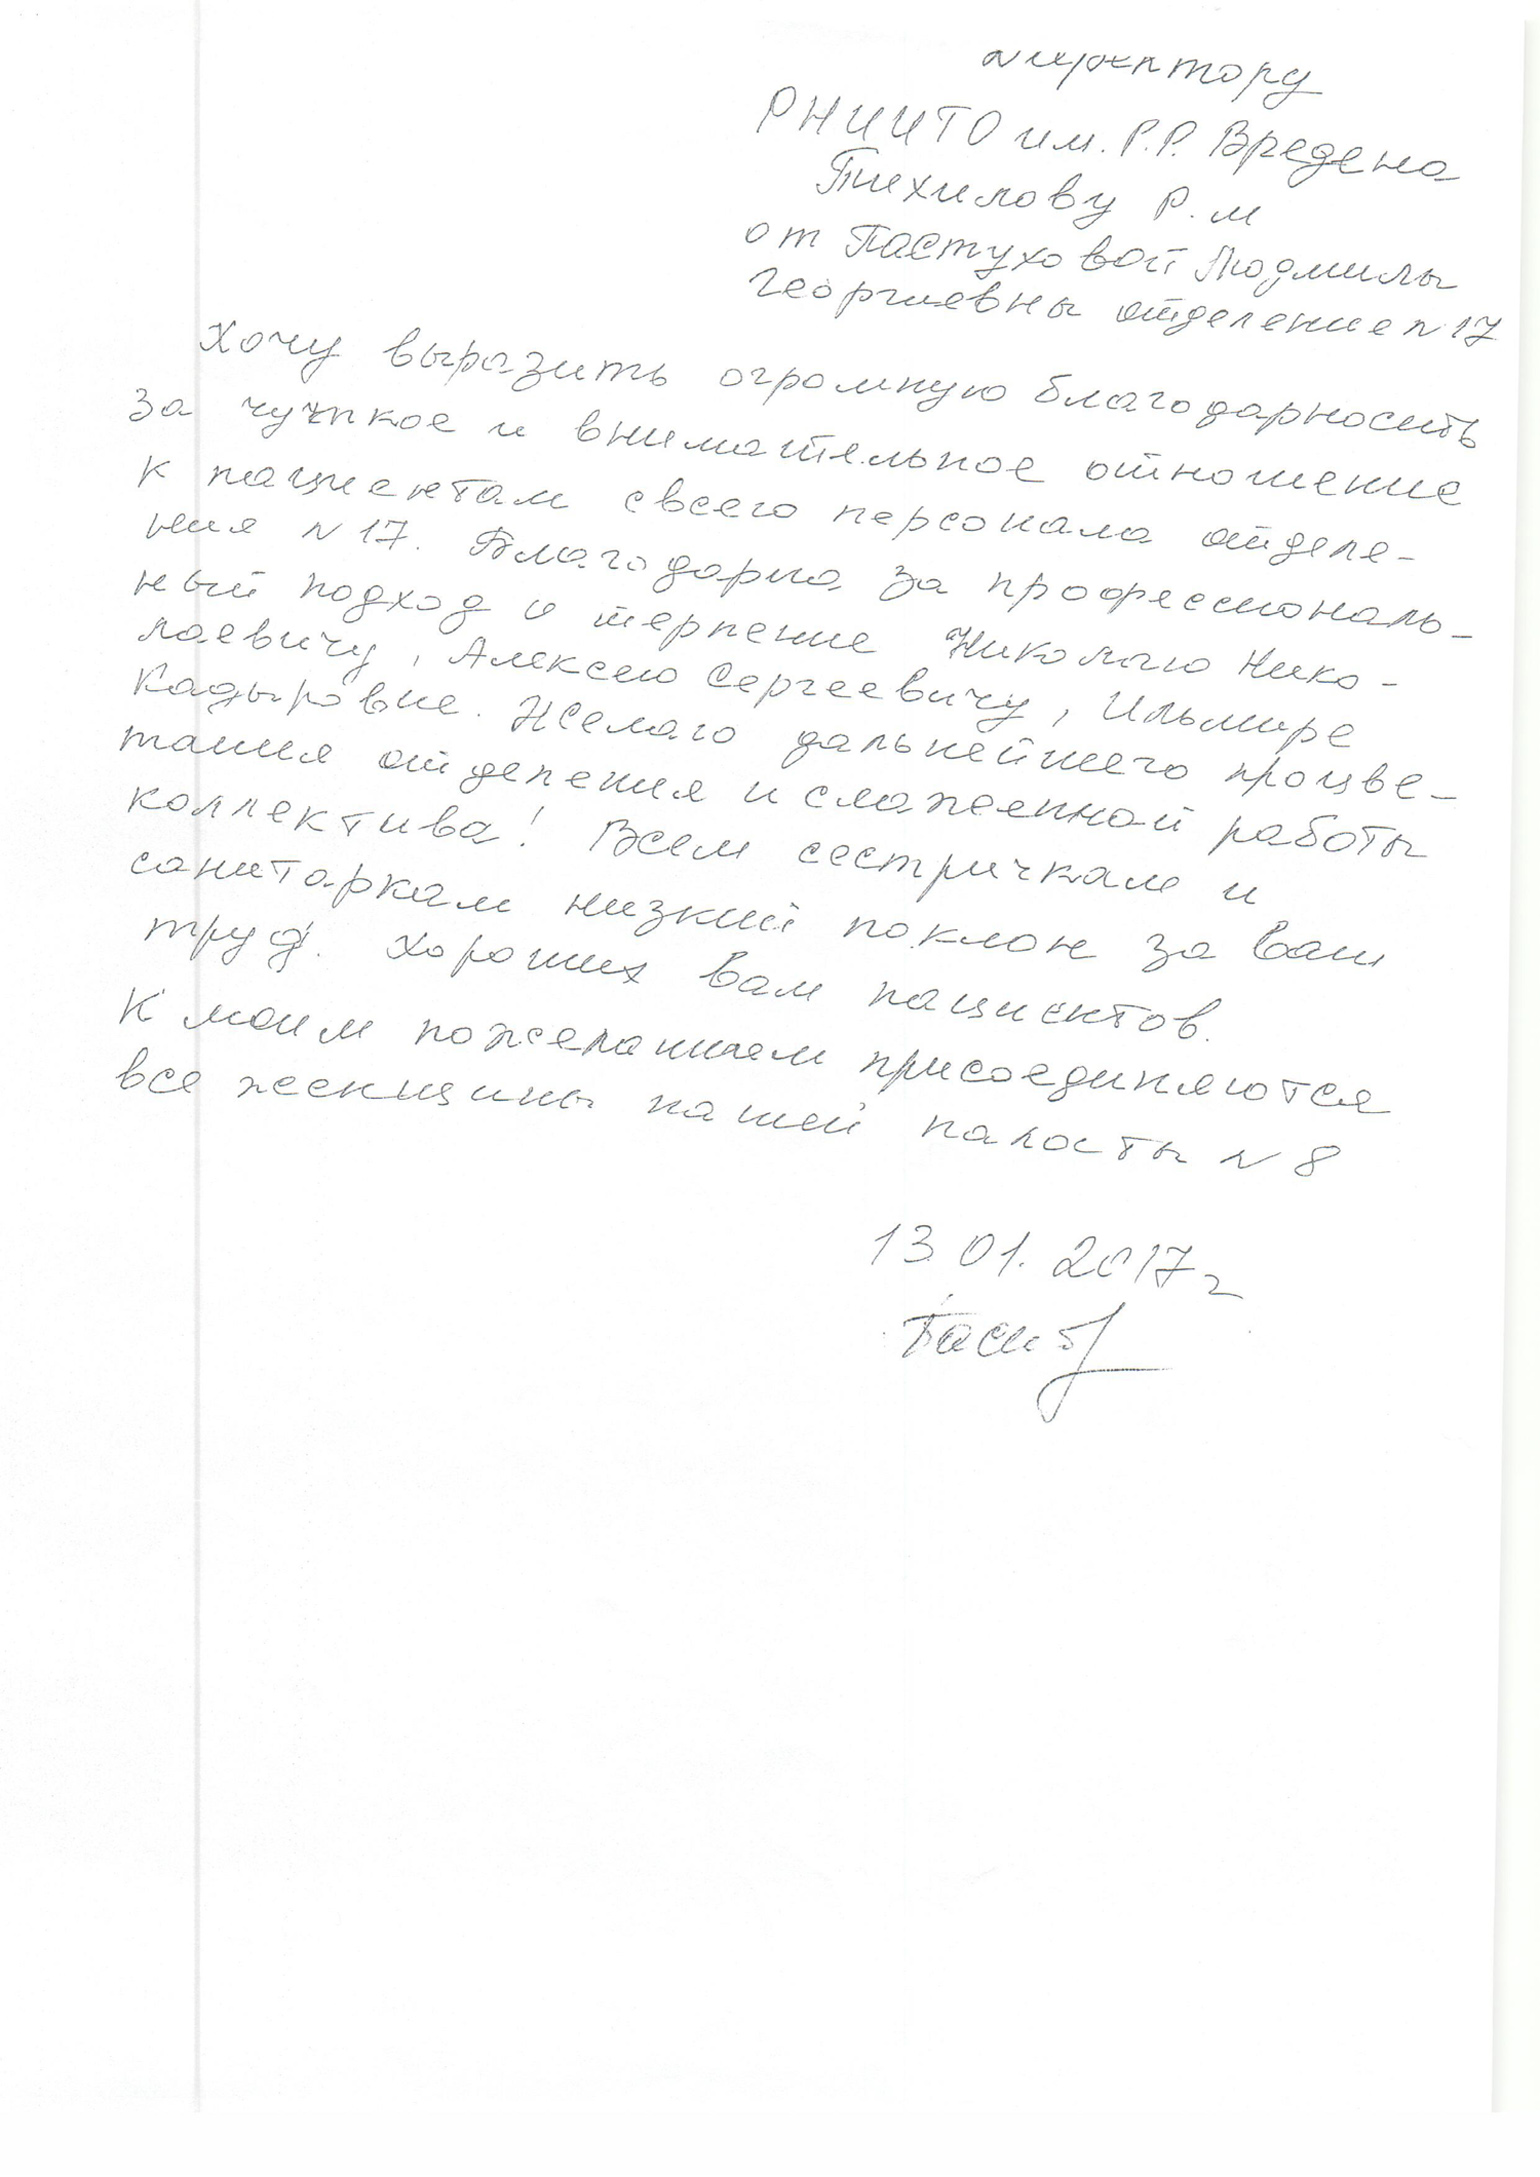 директору
РНИИТО им. Р.Р. Вредена
Тихилову Р.М
от Пастуховой Людмилы
Георгиевны отделение N 17
Хочу выразить огромную благодарность
за чуткое и внимательное отношение
к пациентам своего персонала отделе-
ния N 17. Благодарна за профессиональ-
ный подход и терпение Николаю Нико-
лаевичу, Алексею Сергеевичу, Ильмире
Кадыровне. Желаю дальнейшего процве-
тания отделения и слаженной работы
коллектива! Всем сестричкам и
санитаркам низкий поклон за Ваш
труд. Хороших Вам пациентов.
К моим пожеланием присоединяются
все женщины нашей палаты N 8
13.01.2017г